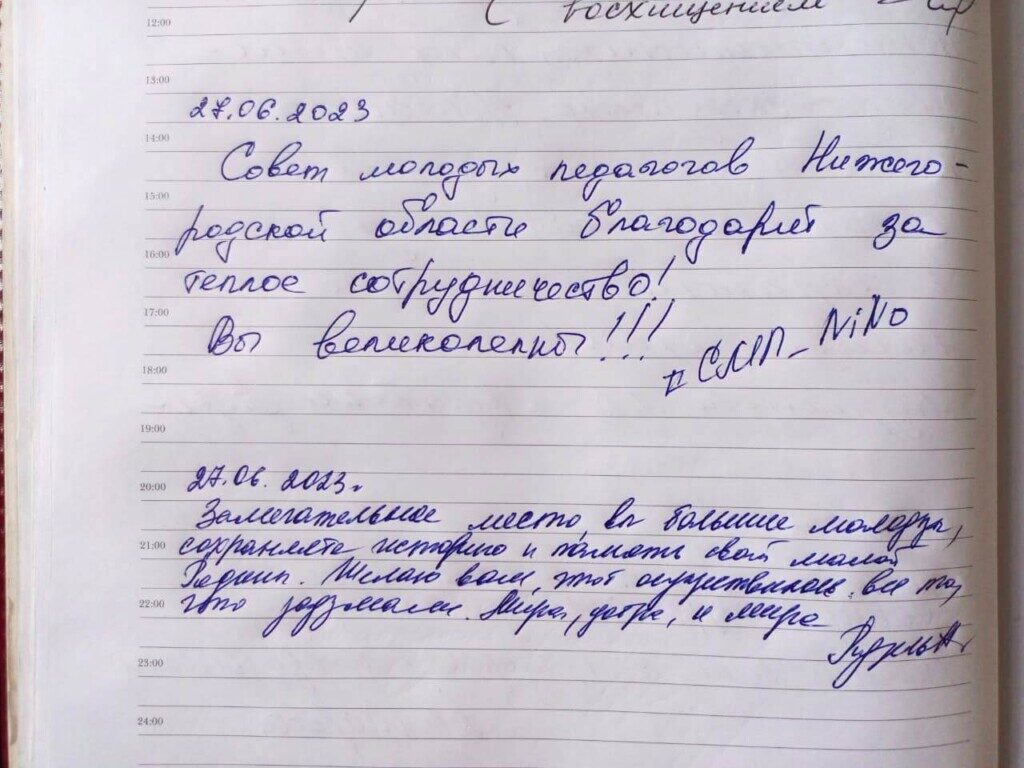 с восхищением
12:00
13:00
27.06.2023
14:00
Совет молодых педагогов Нижего-
15:00
родской области благодарит за
16:00
теплое сотрудничество!
17:00
Вы великолепны!!!
#СМП_NiNo
18:00
19:00
27.06.2023г
20:00
Замечательное место, вы большие молодцы,
21:00
сохраняете историю и память свой малой
Родины. Желаю вам, чтоб осуществилось все то,
22:00
что задумали. Мира, добра, и мира
23:00
24:00